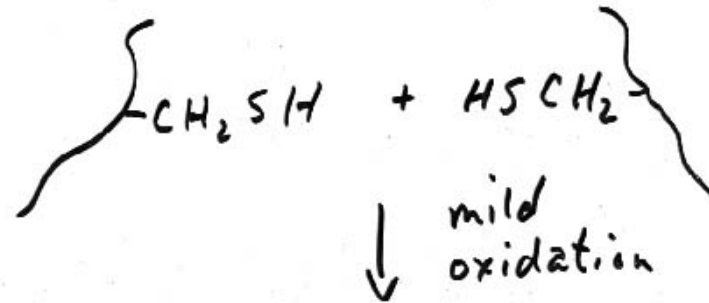 -CH₂SH + HSCH₂-
mild
oxidation